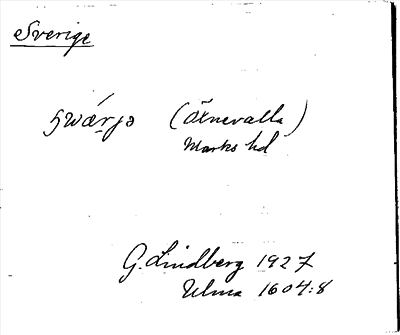 Sverige
swǽrjə (Öxnevalla)
Marks hd
G. Lindberg 1927
Ulma 1604:8